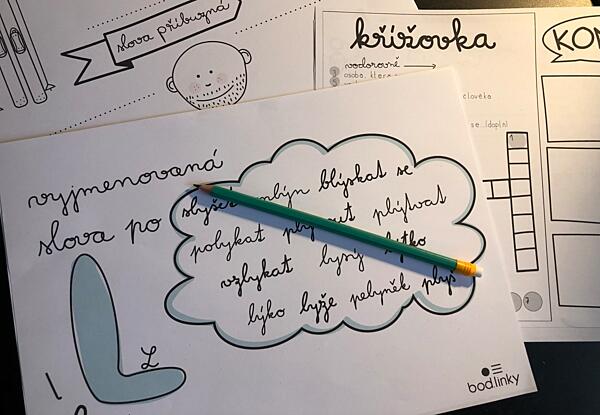 slova příbuzná
křížovka
vodorovně
osoba, která
člověka
se...(doplň)
KOM
vyjmenovaná
slova po
slyšet mlýn blýskat se
polykat plynout plýtvat
vzlykat lysý lýtko
lýko lyže pelyněk plyš
L
l
bod.linky